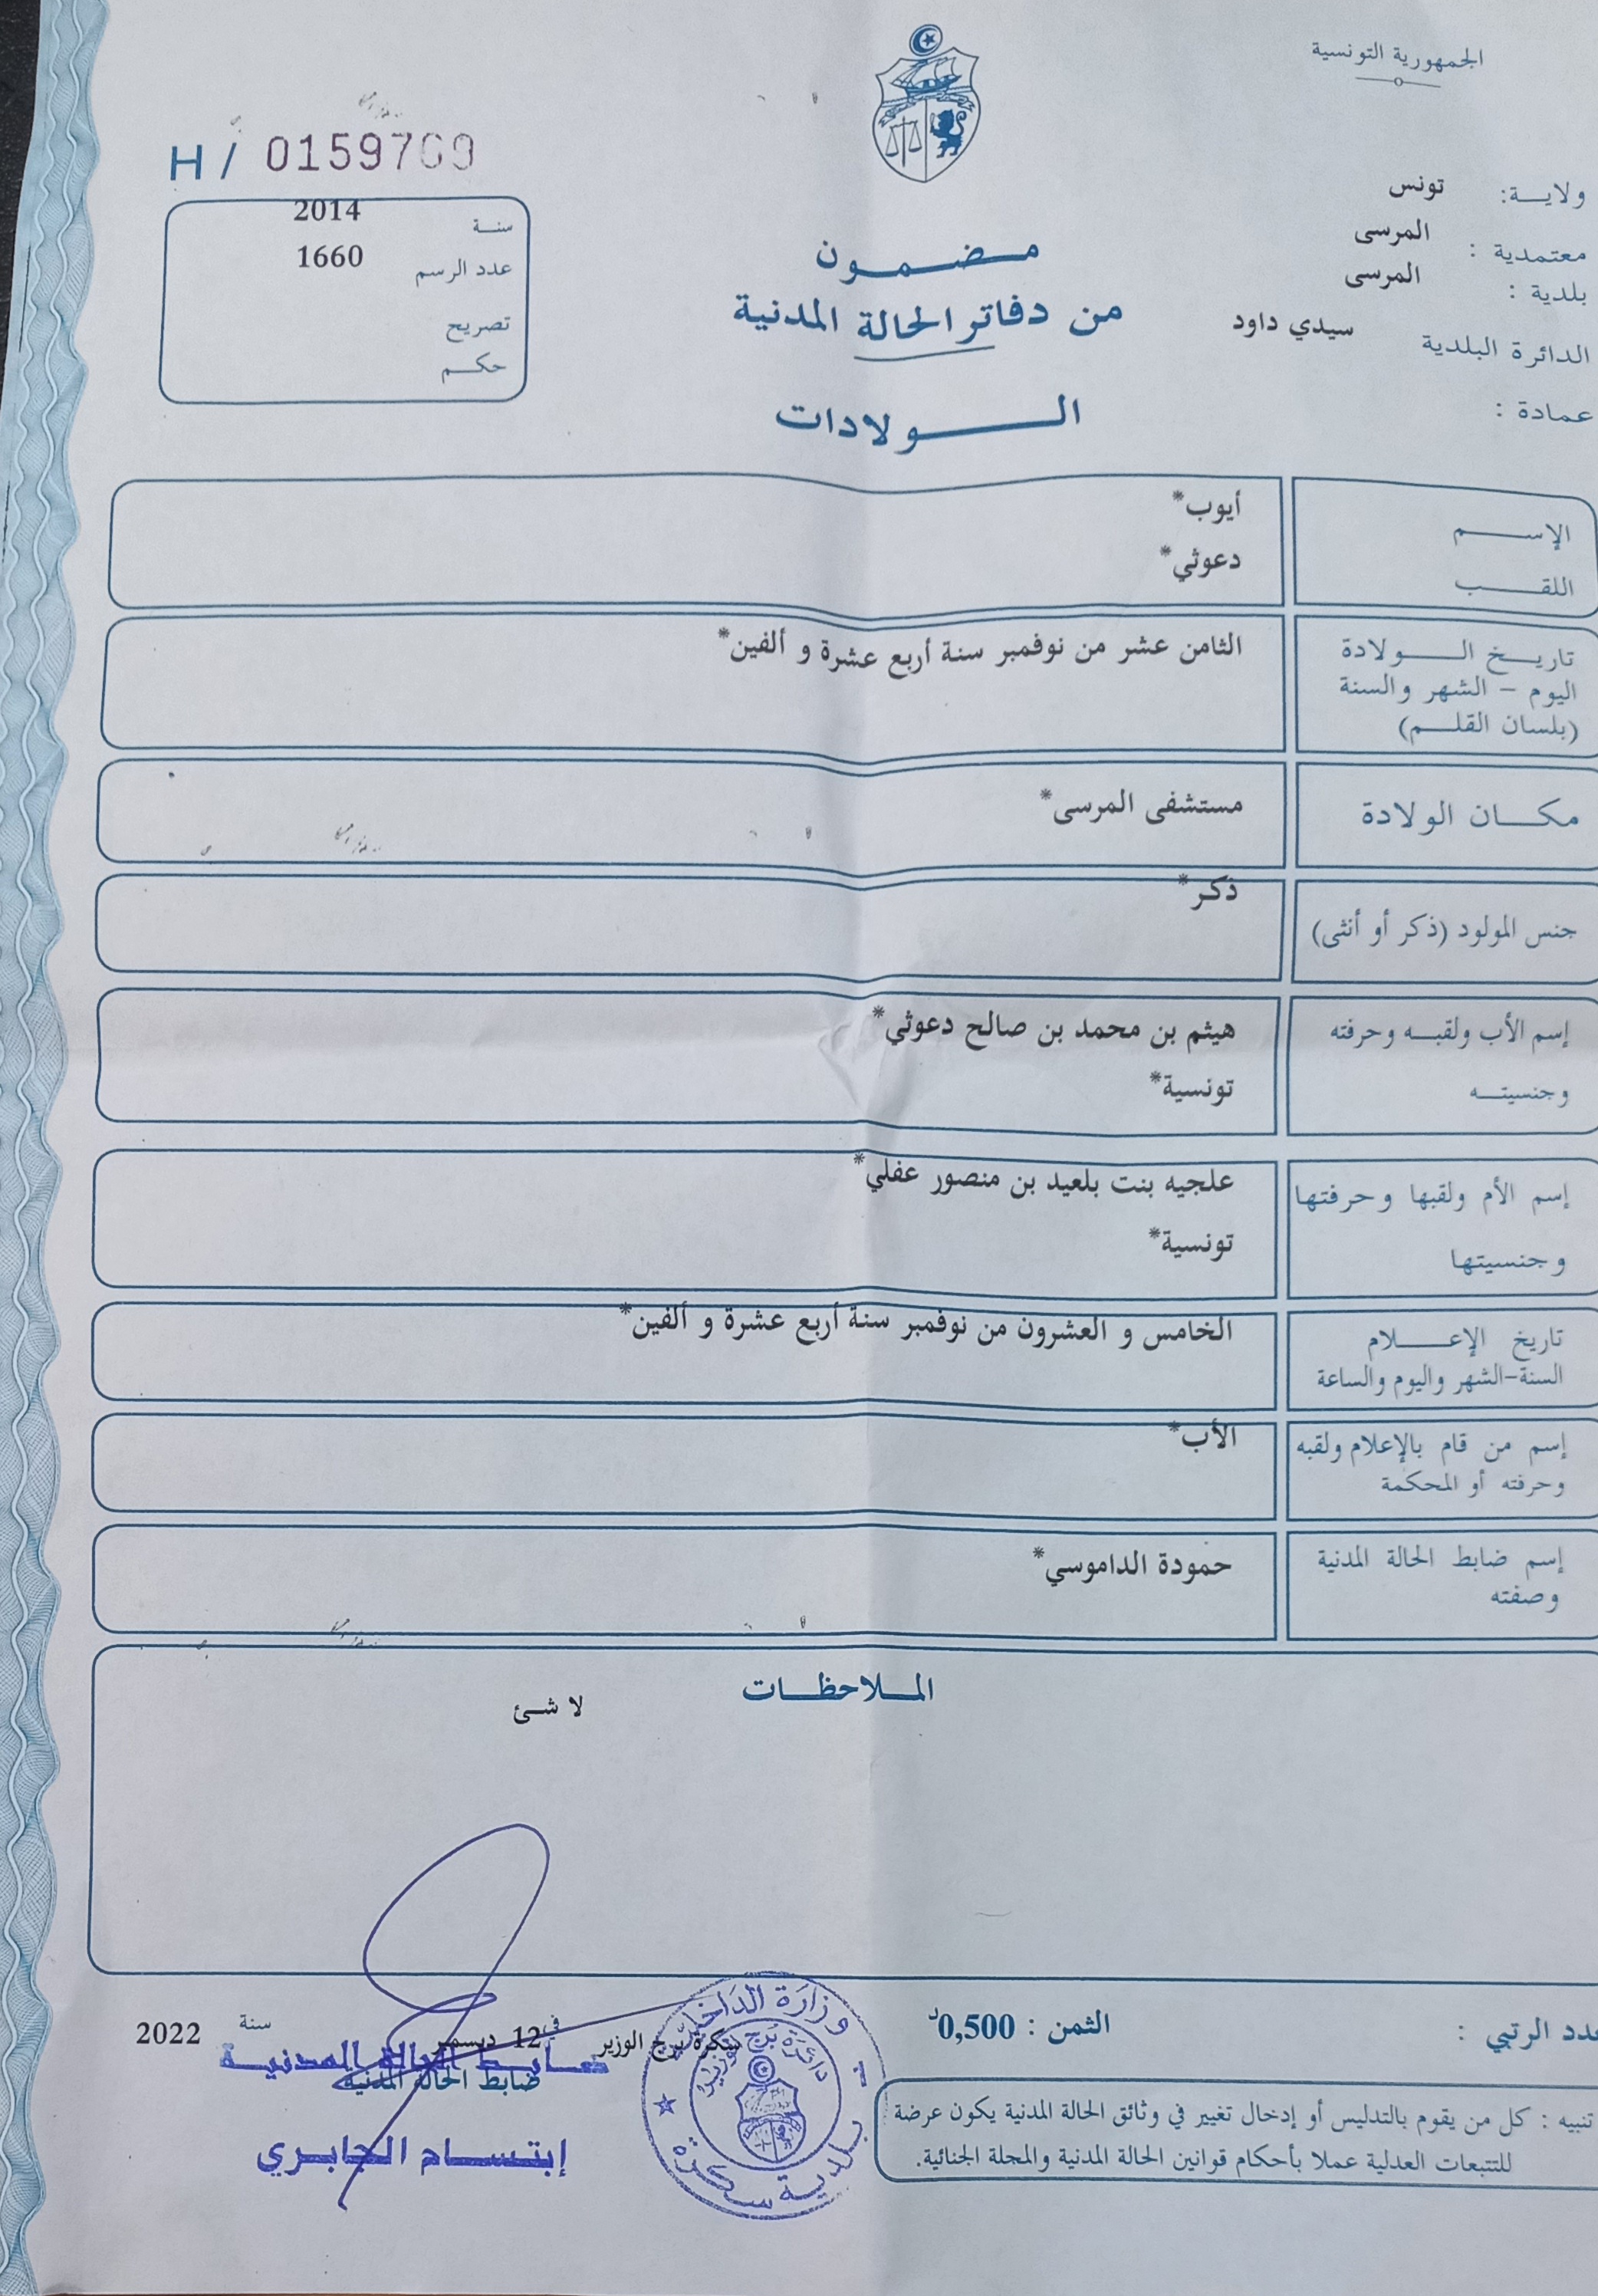 الجمهورية التونسية
ولاية: تونس
معتمدية : المرسى
بلدية : المرسى
الدائرة البلدية سيدي داود
عمادة :
مضمون
من دفاتر الحالة المدنية
الولادات
H / 0159769
سنة 2014
عدد الرسم 1660
تصريح
حكم
الإسم أيوب*
اللقب دعوثي*
تاريخ الولادة الثامن عشر من نوفمبر سنة أربع عشرة و ألفين*
اليوم - الشهر والسنة
(بلسان القلم)
مكان الولادة مستشفى المرسى*
جنس المولود (ذكر أو أنثى) ذكر*
إسم الأب ولقبه وحرفته هيثم بن محمد بن صالح دعوثي*
وجنسيته تونسية*
إسم الأم ولقبها وحرفتها علجيه بنت بلعيد بن منصور عفلي*
وجنسيتها تونسية*
تاريخ الإعلام الخامس و العشرون من نوفمبر سنة أربع عشرة و ألفين*
السنة-الشهر واليوم والساعة
إسم من قام بالإعلام ولقبه الأب*
وحرفته أو المحكمة
إسم ضابط الحالة المدنية حمودة الداموسي*
وصفته
الملاحظات
لا شئ
الرتبي :
الثمن : 0,500د
سكرة برج الوزير في 12 ديسمبر سنة 2022
ضابط الحالة المدنية
ضابط الحالة المدنية
إبتسام الجابري
وزارة الداخلية
دائرة برج الوزير
بلدية سكرة
تنبيه : كل من يقوم بالتدليس أو إدخال تغيير في وثائق الحالة المدنية يكون عرضة
للتتبعات العدلية عملا بأحكام قوانين الحالة المدنية والمجلة الجنائية.